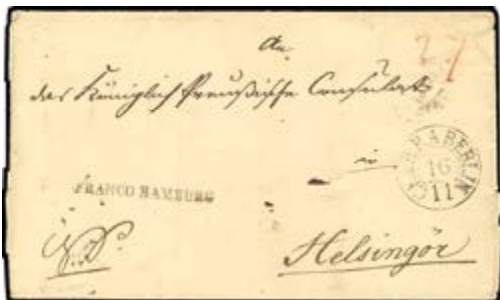 An
27
das Königlich Preußische Consulat
in
16
11
FRANCO HAMBURG
Helsingör